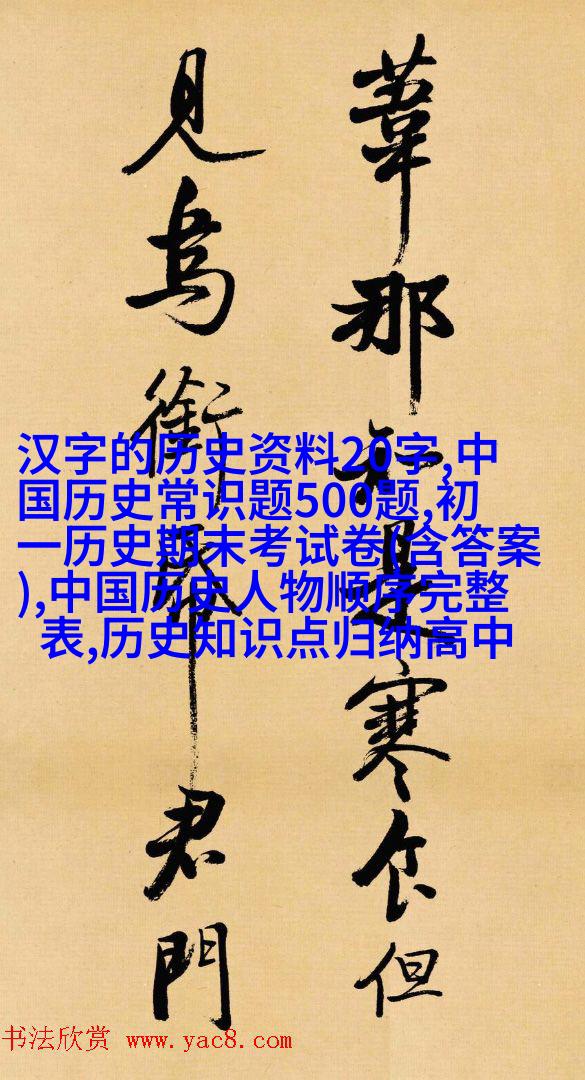 葦那知是寒食但
見烏銜帋君門
汉字的历史资料20字,中
国历史常识题500题,初
一历史期末考试卷(含答案
),中国历史人物顺序完整
表,历史知识点归纳高中
书法欣赏 www.yac8.com